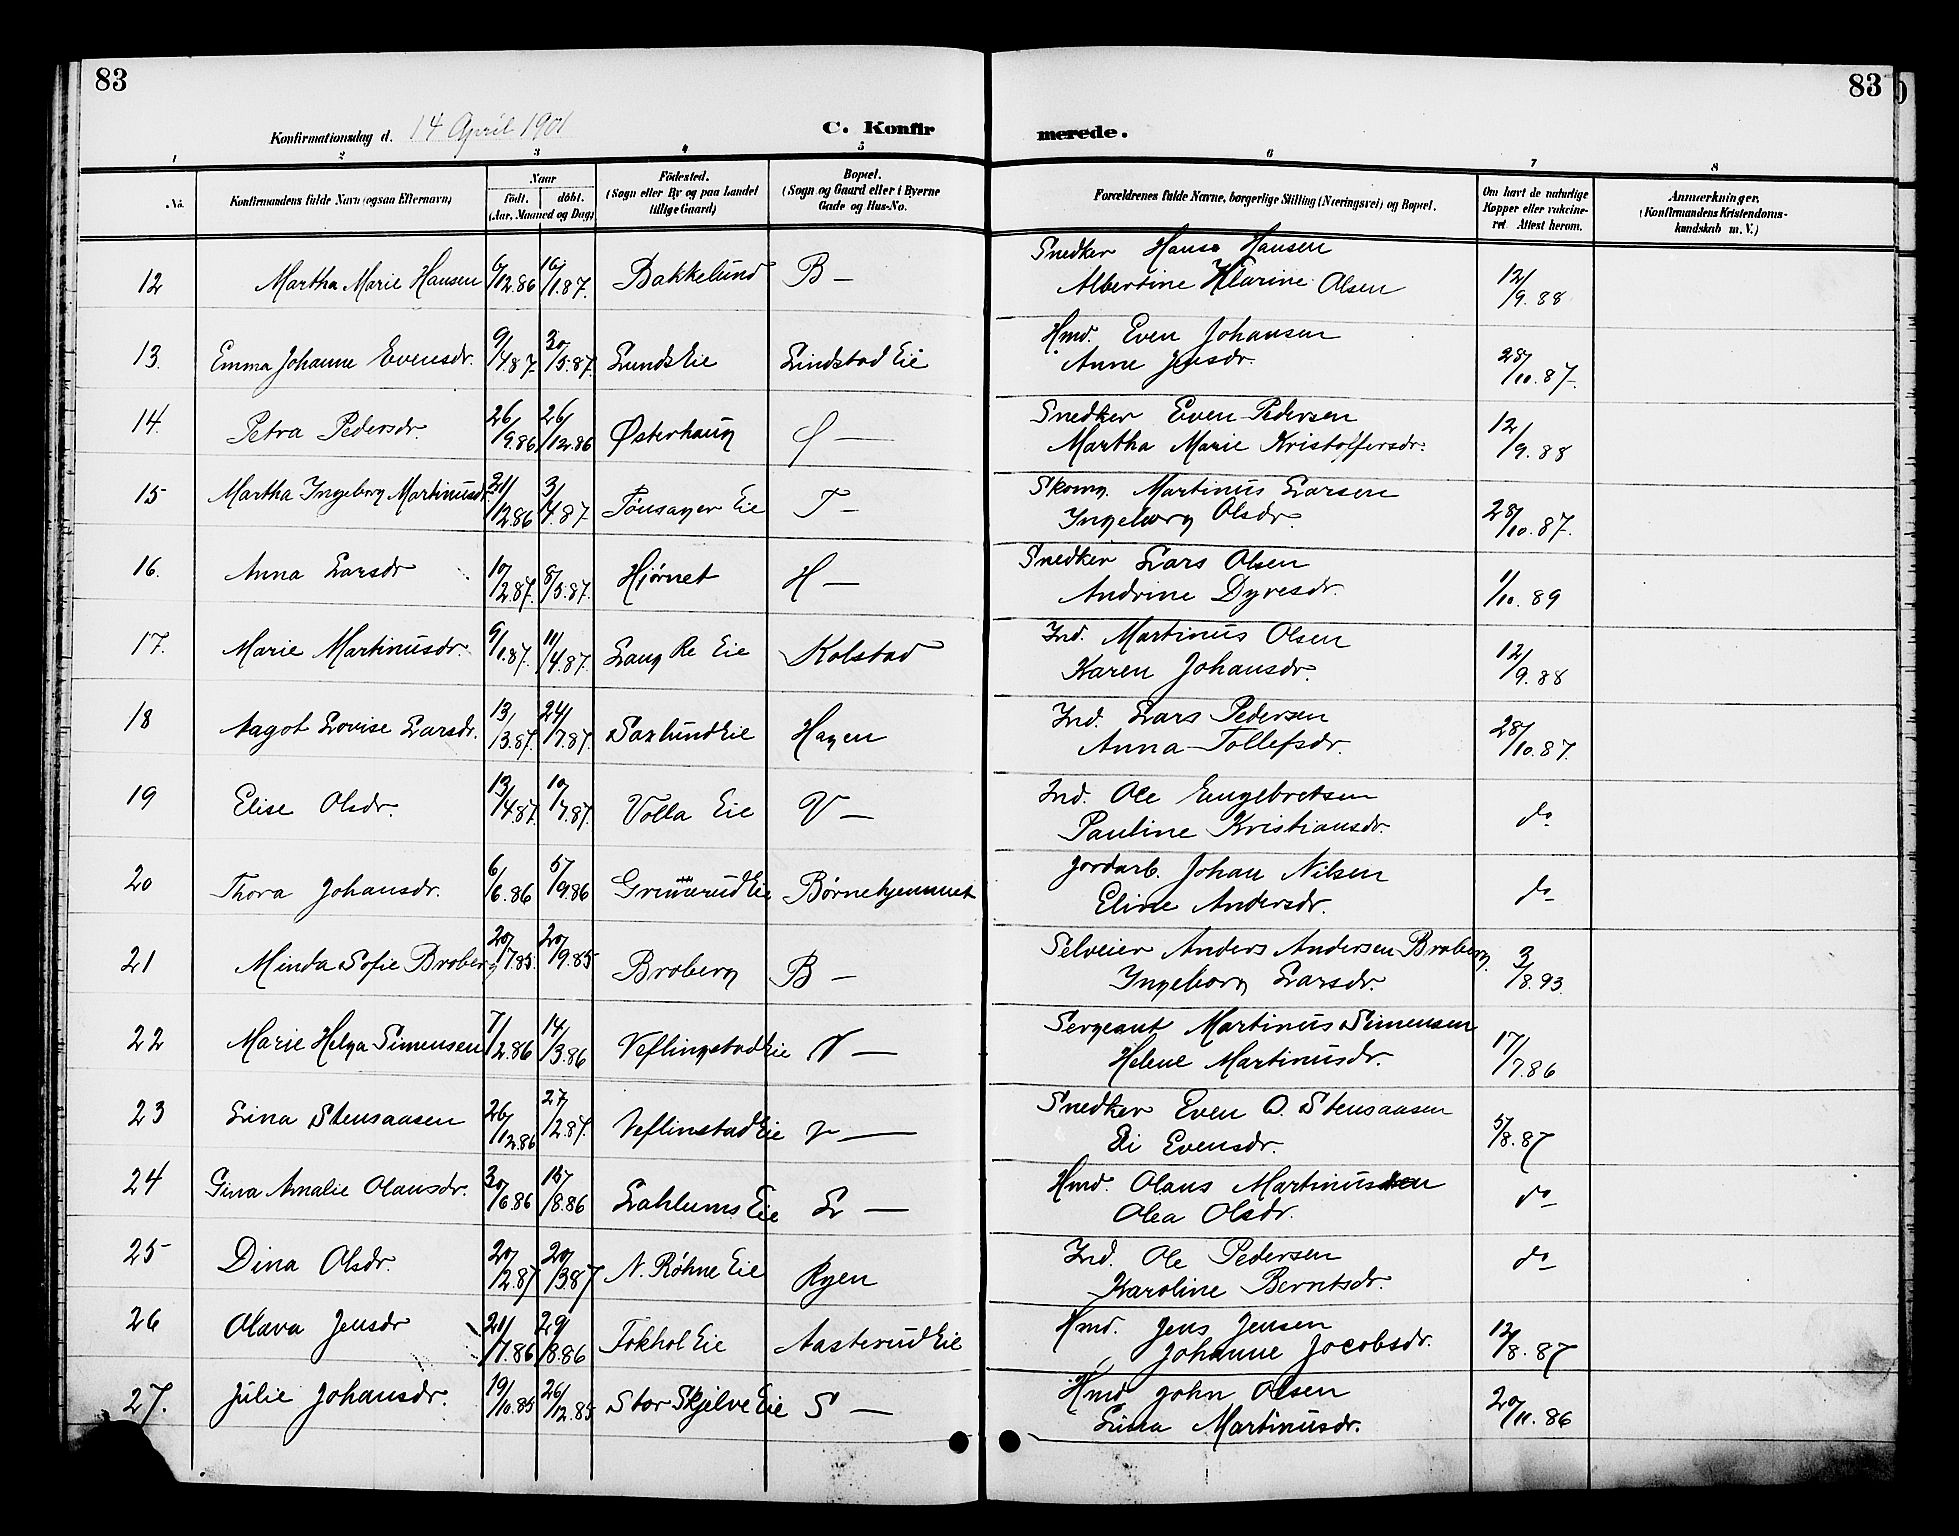 83
83
Konfirmationsdag d. 14 April 1901
C. Konfirmerede.
1 2 3 4 5 6 7 8
No.
Konfirmandens fulde Navn (ogsaa Efternavn)
Naar
födt. döbt.
(Aar, Maaned og Dag)
Födested.
(Sogn eller By og paa Landet
tillige Gaard)
Bopæl.
(Sogn og Gaard eller i Byerne
Gade og Hus-No.
Forældrenes fulde Navne, borgerlige Stilling (Næringsvei) og Bopæl.
Om havt de naturlige
Kopper eller vakcine-
ret Attest herom.
Anmærkninger.
(Konfirmandens Kristendoms-
kundskab m. V.)
12 Martha Marie Hansen 6/12.86 16/1.87. Bakkelund B — Snedker Hans Hansen 12/9.88
Albertine Klarine Olsen
13. Emma Johanne Evensdr. 9/4.87. 30/5.87. Lunds Eie Lindstad Eie Hmd. Even Johansen 28/10.87.
Anne Jensdr.
14. Petra Pedersdr. 26/9.86 26/12.86 Østerhaug Ø — Snedker Even Pedersen 12/9.88
Martha Marie Kristoffersdr.
15 Martha Ingeborg Martinusdr 21/12.86 3/4.87. Tønsager Eie T — Skomg. Martinus Larsen 28/10.87.
Ingeborg Olsdr.
16. Anna Larsdr 10/2.87. 8/5.87. Hjørnet H — Snedker Lars Olsen 1/10.89
Andrine Dyresdr.
17. Marie Martinusdr. 9/1.87. 11/4.87. Lang Re Eie Kolstad Ind. Martinus Olsen 12/9.88
Karen Johansdr.
18 Aagot Lovise Larsdr. 13/3.87. 24/7.87. Saxlund Eie Hagen Ind. Lars Pedersen 28/10.87.
Anna Tollefsdr.
19 Elise Olsdr. 13/4.87. 10/7.87. Volla Eie V — Ind. Ole Engebretsen do
Pauline Kristiansdr.
20 Thora Johansdr. 6/6.86 5/9.86 Grimerud Eie Børnehjemmet Jordarb. Johan Nilsen do
Eline Andersdr.
21 Minda Sofie Broberg 20/7.85. 20/9.85 Broberg B — Selveier Anders Andersen Broberg. 3/8.93.
Ingeborg Larsdr.
22 Marie Helga Simensen 7/2.86 14/3.86 Veflingstad Eie V — Sergeant Martinus Simensen 17/7.86
Helene Martinusdr.
23 Lina Stensaasen 26/12.86 27/2.87. Veflinstad Eie V — Snedker Even O. Stensaasen 5/8.87
Evensdr.
24 Gina Amalie Olausdr. 30/6.86 15/8.86 Lahlums Eie L — Hmd. Olaus Martinussen do
Olea Olsdr.
25 Dina Olsdr. 20/2.87 20/3 87 N. Røhne Eie Ryen Ind. Ole Pedersen do
Karoline Berntsdr.
26 Olava Jensdr 21/7.86 29/8.86 Fokhol Eie Aasterud Eie Hmd. Jens Jensen 12/8.87
Johanne Jocobsdr.
27. Julie Johansdr. 19/10.85 26/12.85 Stor Skjelve Eie S — Hmd John Olsen 20/11.86
Lina Martinusdr.